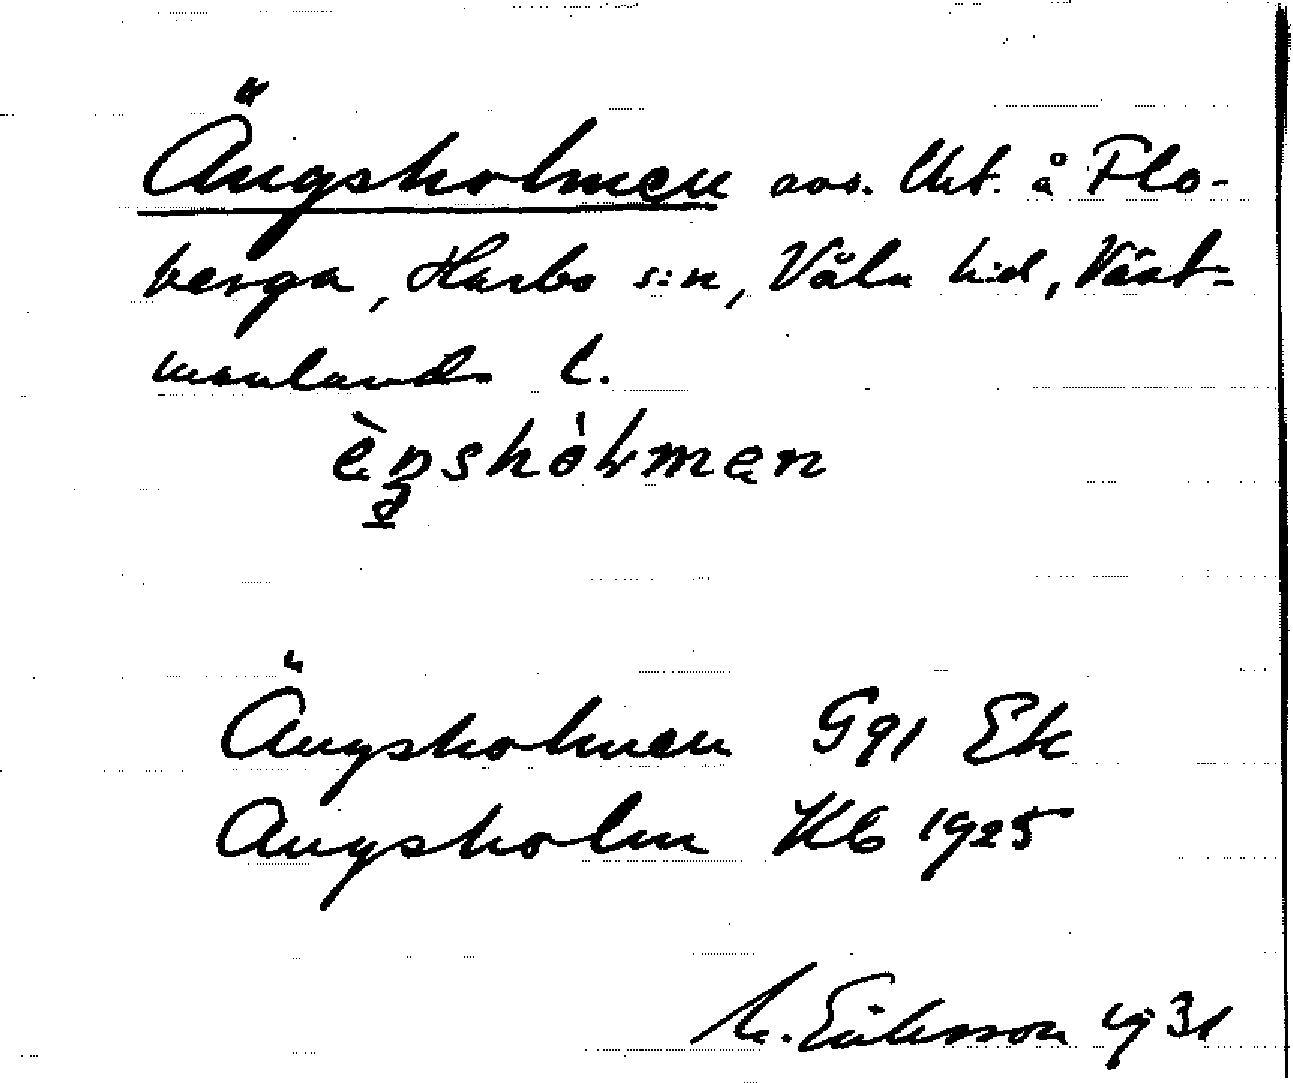 Ängsholmen avs. Utt. å Flo-
berga, Harbo s:n, Våla hd, Väst-
manlands l.
Ängsholmen G91 Ek
Ängsholm Kb 1925
Eriksson 1931